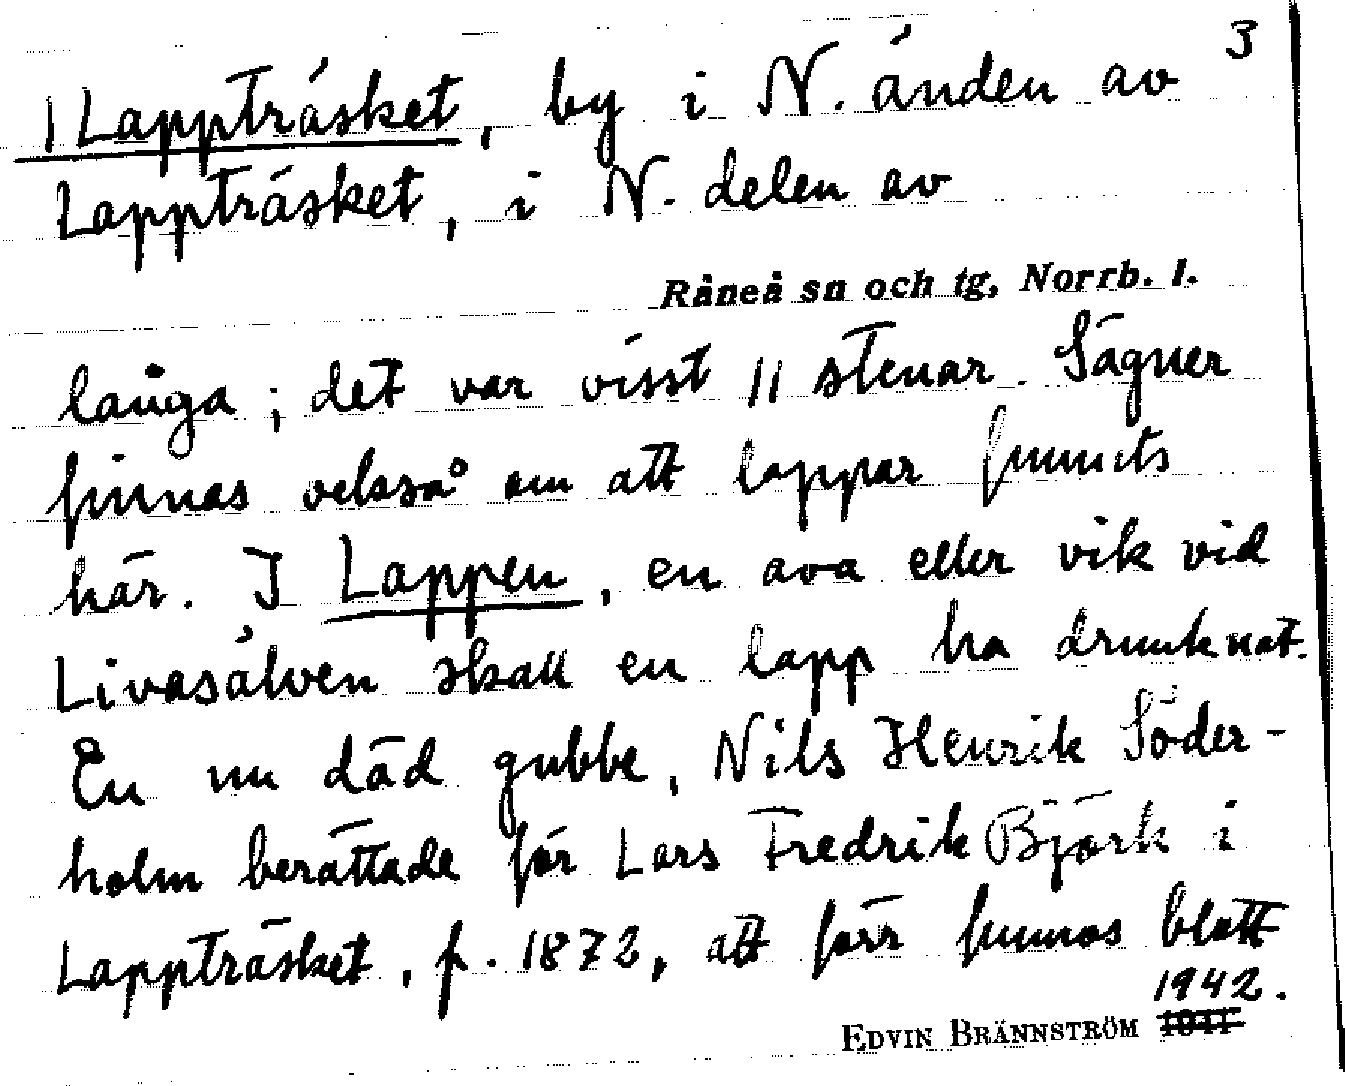 3
1 Lappträsket, by i N. änden av
Lappträsket, i N. delen av
Råneå sn och tg, Norrb. l.
långa; det var visst 11 stenar. Sägner
finnas också om att lappar funnits
här. I Lappen, en ava eller vik vid
Livasälven skall en lapp ha drunknat.
En nu död gubbe, Nils Henrik Söder-
holm berättade för Lars Fredrik Björk i
Lappträsket, f. 1872, att förr funnos blott
1942.
EDVIN BRÄNNSTRÖM 1941